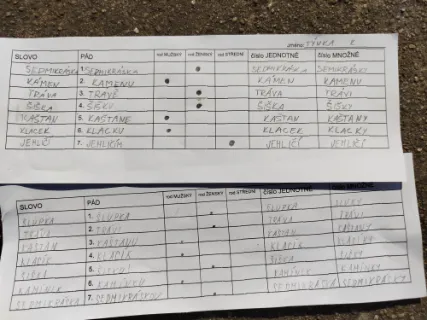 Jméno: TÝNKA K
SLOVO PÁD rod MUŽSKÝ rod ŽENSKÝ rod STŘEDNÍ číslo JEDNOTNÉ číslo MNOŽNÉ
SEDMIKRÁSKA 1. SEDMIKRÁSKA SEDMIKRÁSKA SEDMIKRÁSKY
KÁMEN 2. KAMENU KÁMEN KAMENU
TRÁVA 3. TRÁVĚ TRÁVA TRÁVI
ŠIŠKA 4. ŠIŠKU ŠIŠKA ŠIŠKY
KAŠTAN 5. KAŠTANE KAŠTAN KAŠTANY
KLACEK 6. KLACKU KLACEK KLACKY
JEHLIČÍ 7. JEHLIČÍM JEHLIČÍ JEHLIČÍ
SLOVO PÁD rod MUŽSKÝ rod ŽENSKÝ rod STŘEDNÍ číslo JEDNOTNÉ číslo MNOŽNÉ
1.
2. TRÁVI TRÁVA TRÁVI
KAŠTAN 3. KAŠTANU KAŠTAN KAŠTANY
KLACÍK 4. KLACÍK KLACÍK KLACÍKY
ŠIŠKA 5. ŠIŠKA ŠIŠKY
KAMÍNEK 6. KAMÍNKU KAMÍNEK KAMÍNKY
SEDMIKRÁSKA 7. SEDMIKRÁSKOU SEDMIKRÁSKA SEDMIKRÁSKY